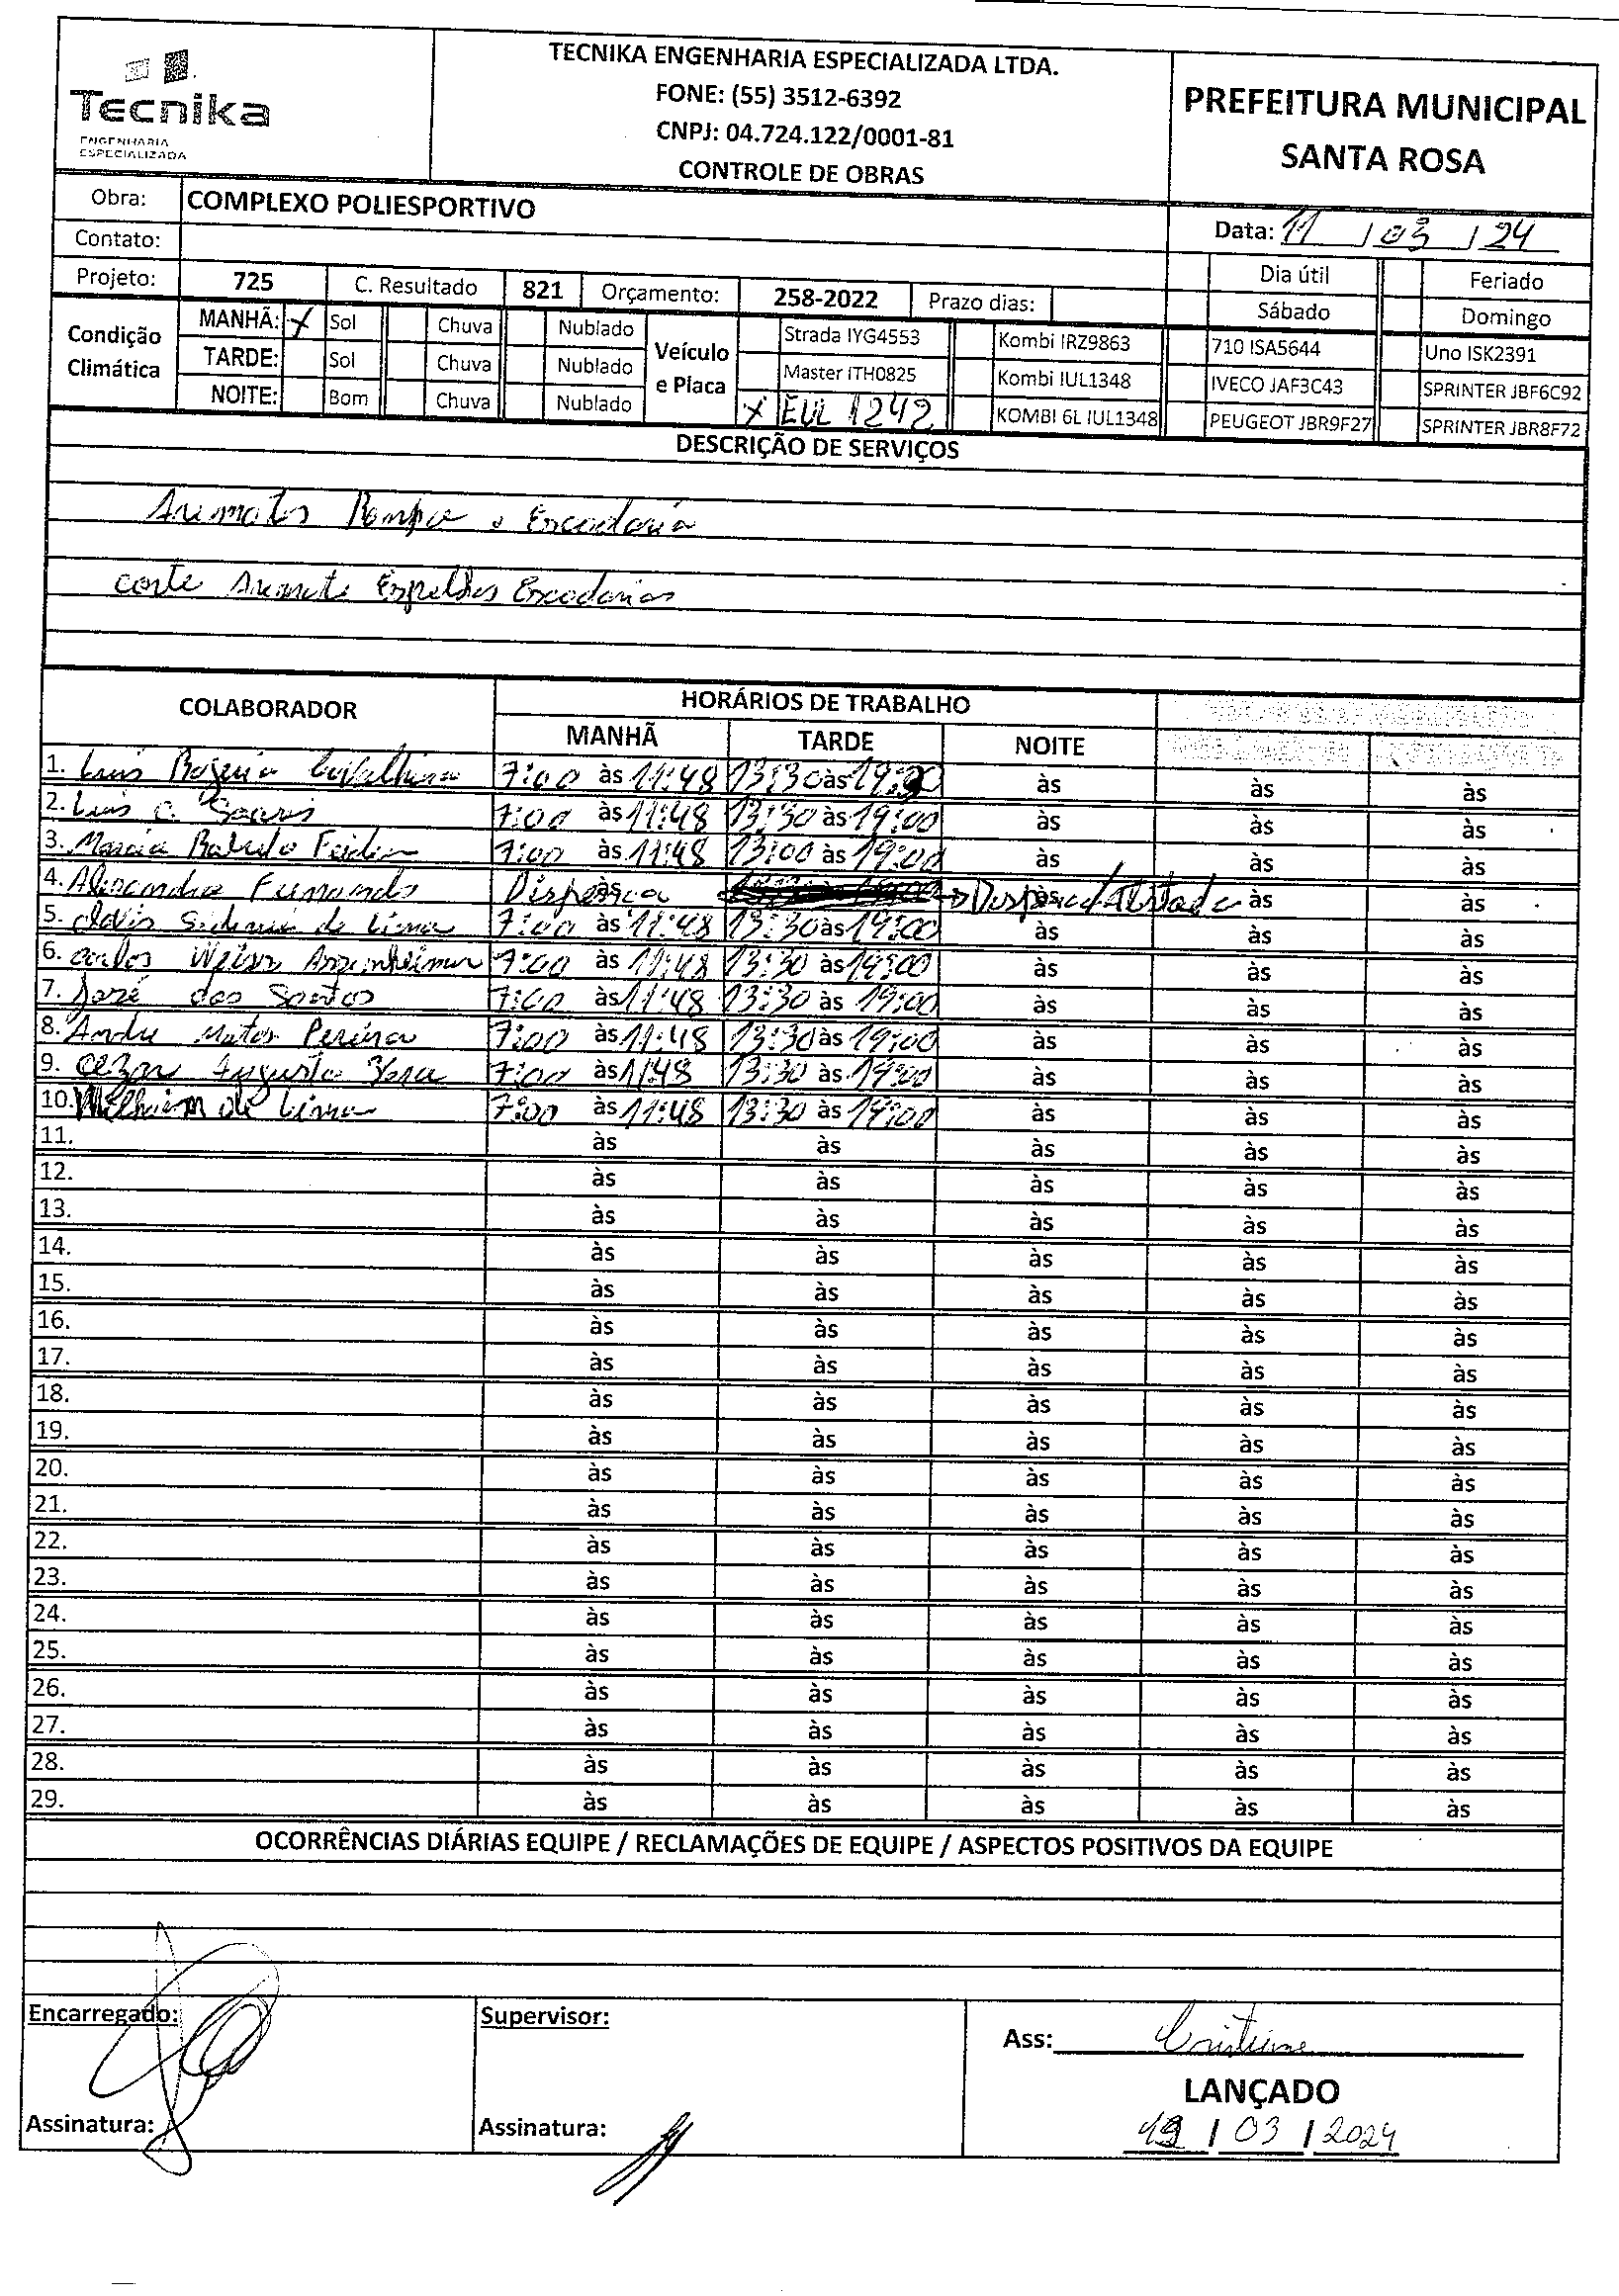 Tecnika
ENGENHARIA
ESPECIALIZADA
TECNIKA ENGENHARIA ESPECIALIZADA LTDA.
FONE: (55) 3512-6392
CNPJ: 04.724.122/0001-81
CONTROLE DE OBRAS
PREFEITURA MUNICIPAL
SANTA ROSA
Obra: COMPLEXO POLIESPORTIVO
Data: 11 / 03 / 24
Contato:
Projeto: 725 C. Resultado 821 Orçamento: 258-2022 Prazo dias: Dia útil Feriado
Sábado Domingo
Condição Climática
MANHÃ: X Sol Chuva Nublado
TARDE: Sol Chuva Nublado
NOITE: Bom Chuva Nublado
Veículo e Placa
Strada IYG4553 Kombi IRZ9863 710 ISA5644 Uno ISK2391
Master ITH0825 Kombi IUL1348 IVECO JAF3C43 SPRINTER JBF6C92
X EUL 1242 KOMBI 6L IUL1348 PEUGEOT JBR9F27 SPRINTER JBR8F72
DESCRIÇÃO DE SERVIÇOS
Rampa e Escadaria
corte Escadarias
COLABORADOR HORÁRIOS DE TRABALHO
MANHÃ TARDE NOITE
1. Luis 7:00 às 11:48 13:30 às às às às
2. Luis C. Soares 7:00 às 11:48 13:30 às 19:00 às às às
3. 7:00 às 11:48 13:00 às 19:00 às às às
4. Dispensa às às às às
5. de Lima 7:00 às 11:48 13:30 às 19:00 às às às
6. Carlos 7:00 às 11:48 13:30 às 19:00 às às às
7. José dos Santos 7:00 às 11:48 13:30 às 19:00 às às às
8. Andre Matos Pereira 7:00 às 11:48 13:30 às 19:00 às às às
9. Cezar Augusto 7:00 às 11:48 13:30 às 19:00 às às às
10. de Lima 7:00 às 11:48 13:30 às 19:00 às às às
11. às às às às às
12. às às às às às
13. às às às às às
14. às às às às às
15. às às às às às
16. às às às às às
17. às às às às às
18. às às às às às
19. às às às às às
20. às às às às às
21. às às às às às
22. às às às às às
23. às às às às às
24. às às às às às
25. às às às às às
26. às às às às às
27. às às às às às
28. às às às às às
29. às às às às às
OCORRÊNCIAS DIÁRIAS EQUIPE / RECLAMAÇÕES DE EQUIPE / ASPECTOS POSITIVOS DA EQUIPE
Encarregado:
Supervisor:
Ass: Cristiane
LANÇADO
Assinatura:
Assinatura:
/ 03 / 2024